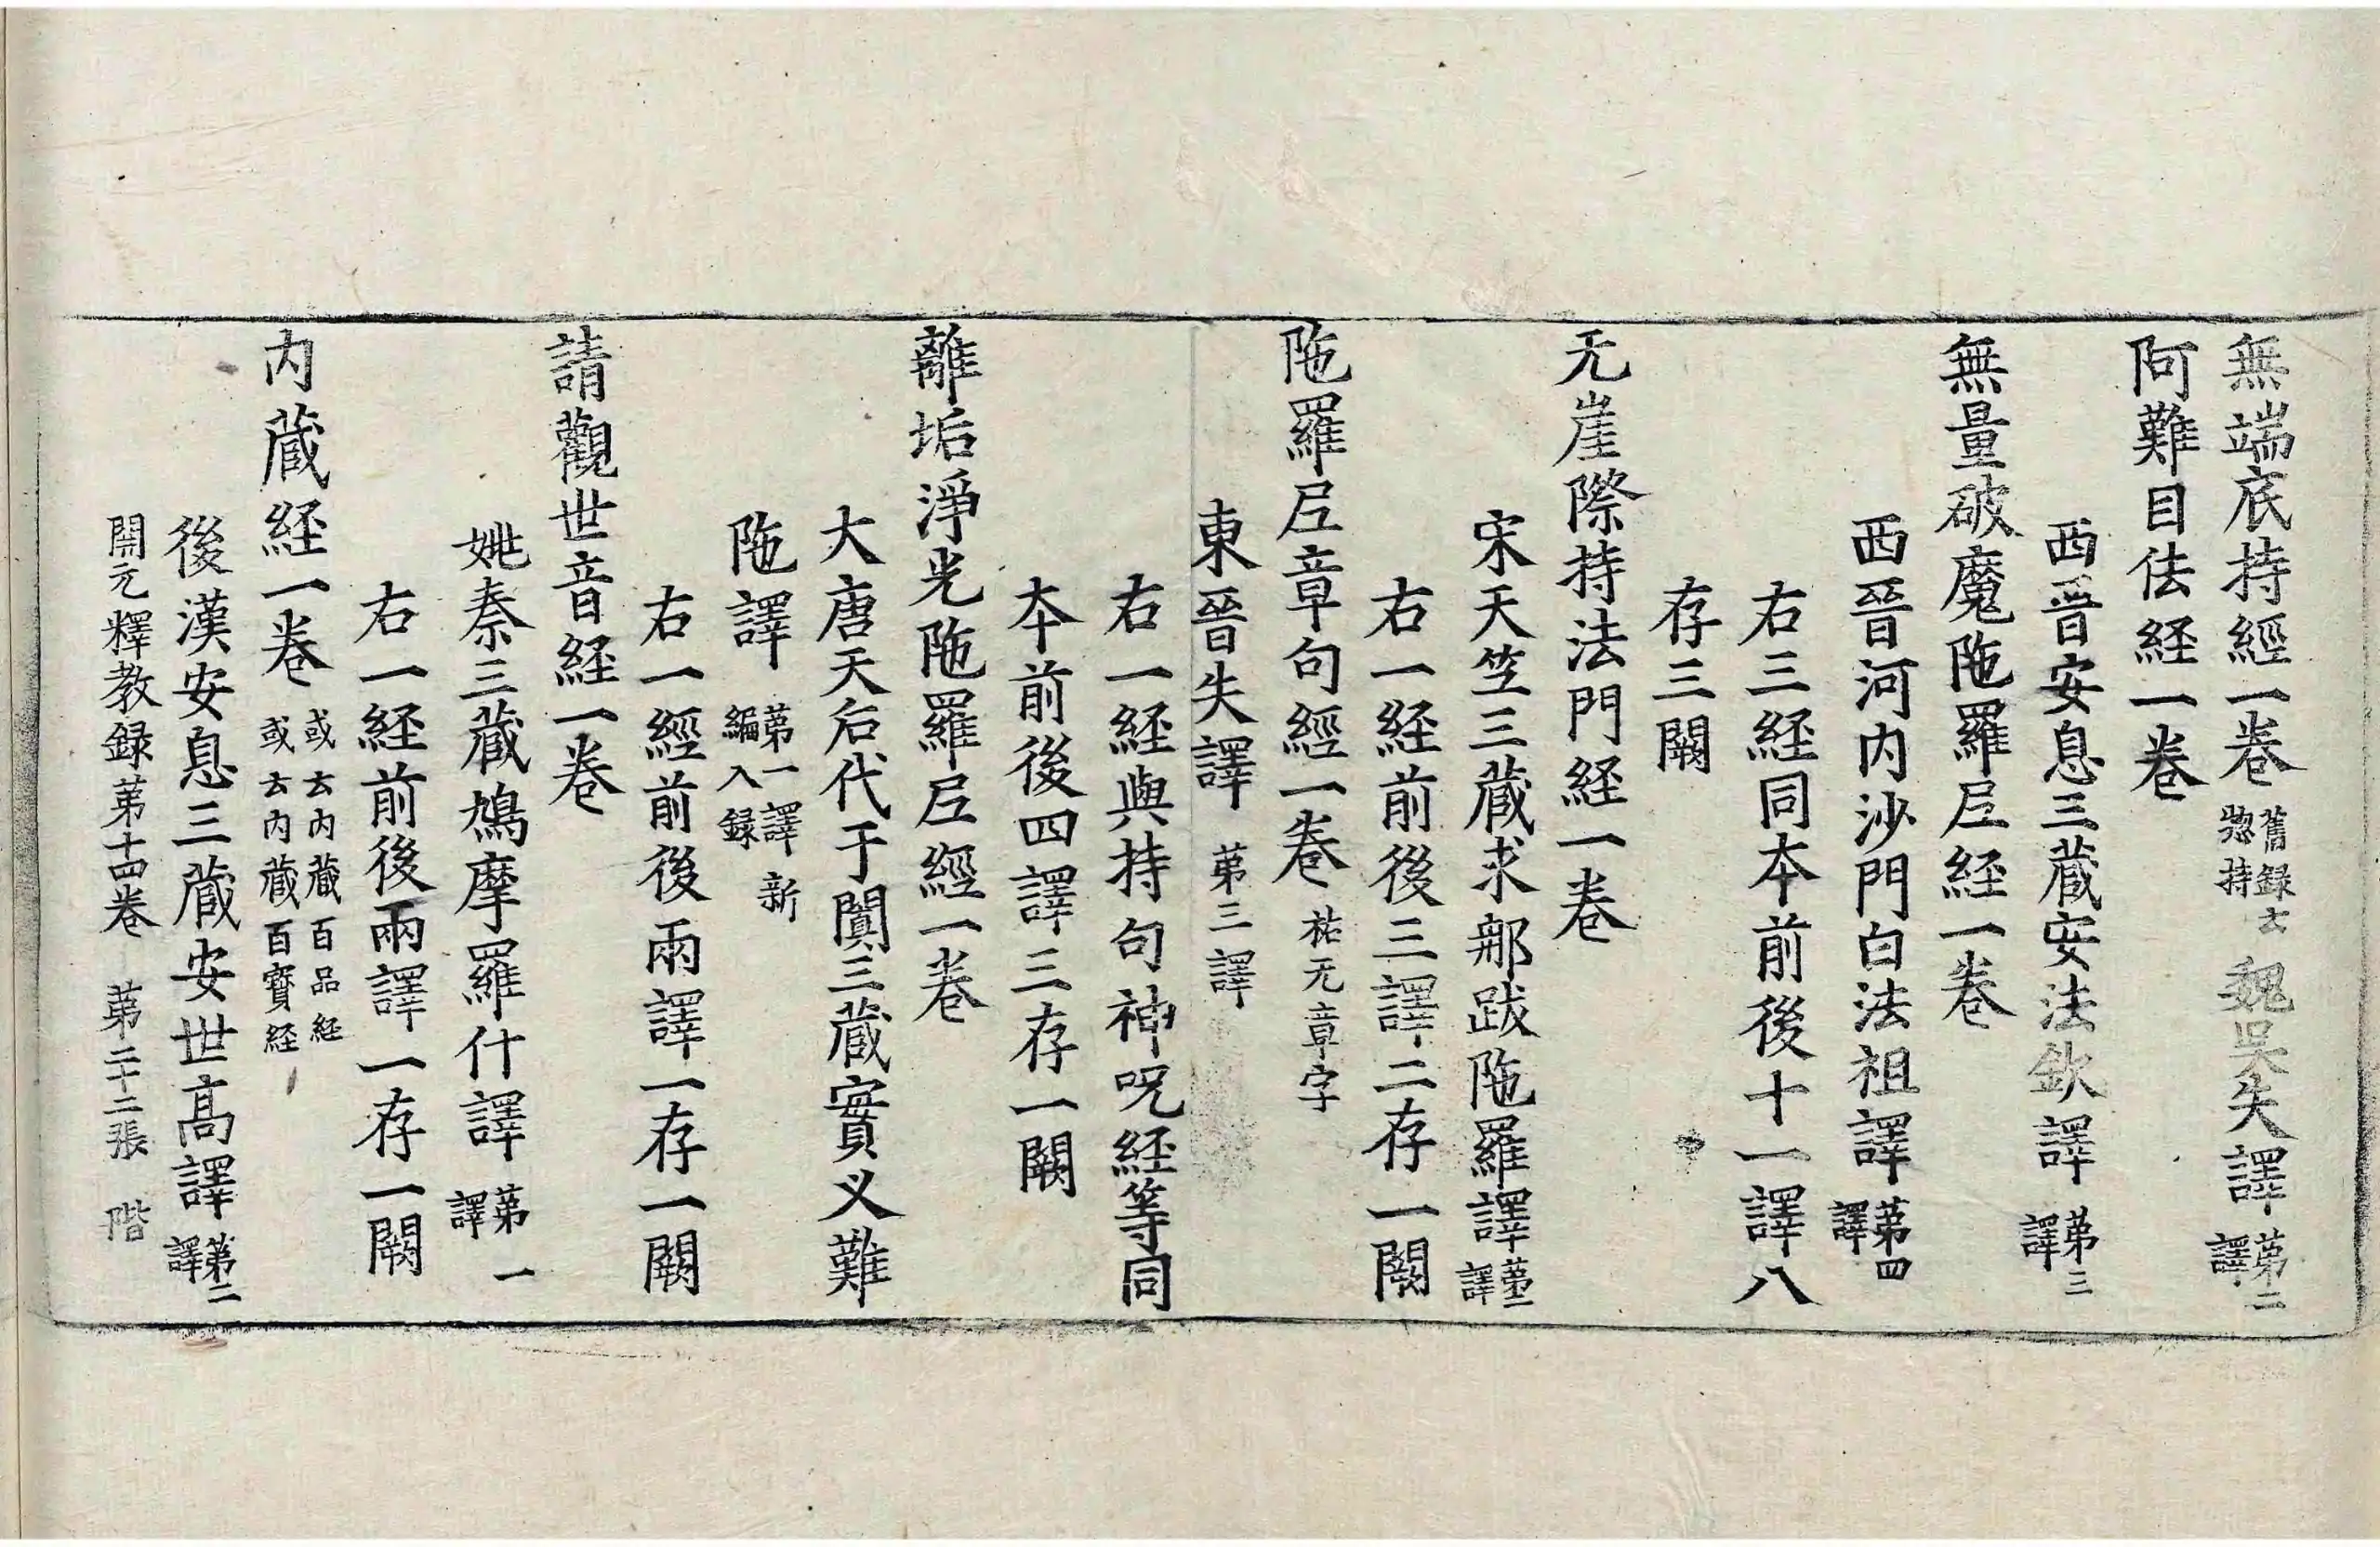 無端底持經一卷 舊録云惣持 魏吳失譯 苐二譯
阿難目佉経一卷
西晉安息三藏安法欽譯 苐三譯
無量破魔陁羅尼経一卷
西晉河内沙門白法祖譯 苐四譯
右三経同夲前後十一譯八
存三闕
无崖際持法門経一卷
宋天竺三藏求那跋陁羅譯 苐二譯
右一経前後三譯二存一闕
陁羅尼章句經一卷 祐无章字
東晉失譯 苐三譯
右一経與持句神呪経等同
夲前後四譯三存一闕
離垢淨光陁羅尼經一卷
大唐天后代于闐三藏實义難
陁譯 苐一譯新編入録
右一經前後兩譯一存一闕
請觀世音経一卷
姚秦三藏鳩摩羅什譯 苐一譯
右一経前後兩譯一存一闕
内藏経一卷 或云内藏百品経或云内藏百寶経
後漢安息三藏安世高譯 苐二譯
開元釋教録苐十四卷 苐二十二張 階